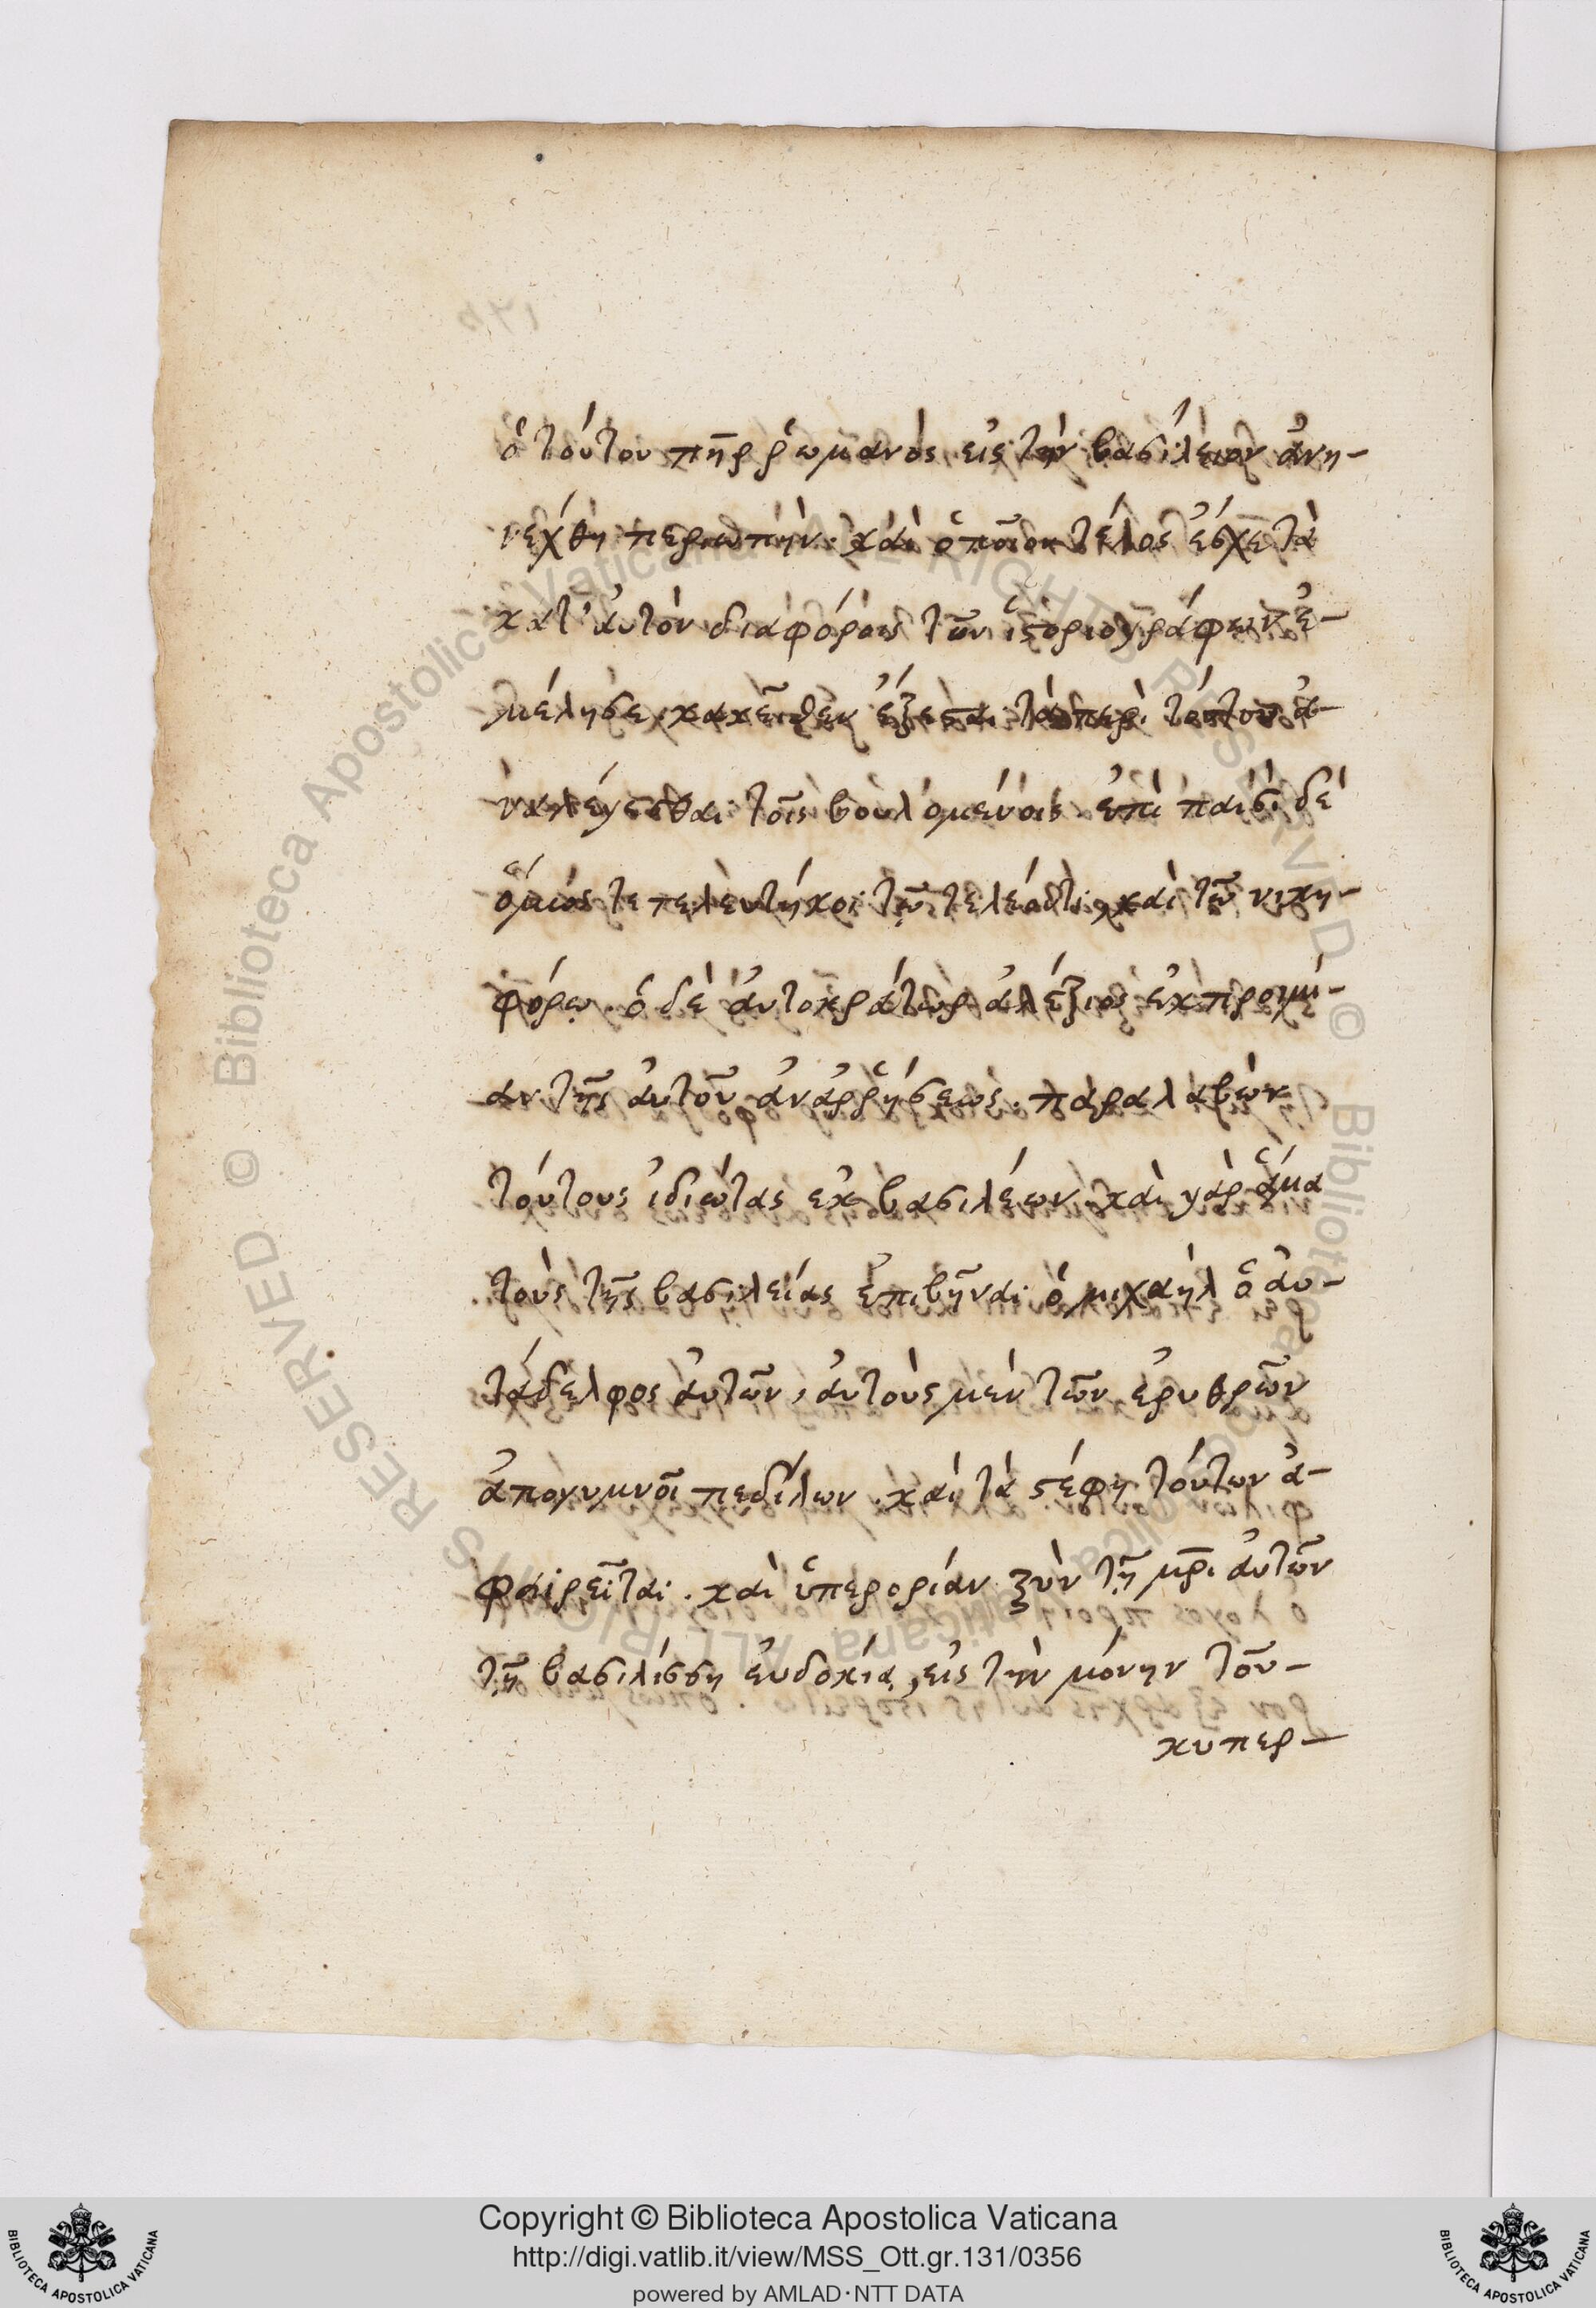 ὁ τούτου πῆρ ῥωμανὸς εἰς τὴν βασίλειον ἀνη-
νέχθη περιωπὴν. καὶ ὁποῖον τέλος ἔσχε τὰ
κατ' αὐτὸν διαφόροις τῶν ἱστοριογράφων ἐ-
μέλησε. κἀκεῖθεν ἔξεστι τὰ περὶ τούτου ἀ-
ναλέγεσθαι τοῖς βουλομένοις. ἐπὶ παισὶ δὲ
ὅμως τετελευτήκοι τῷ τε λέοντι, καὶ τῷ νικη-
φόρῳ. ὁ δὲ αὐτοκράτωρ ἀλέξιος ἐκ προιμί-
αν τῆς αὐτοῦ ἀναῤῥήσεως. παραλαβὼν
τούτους ἰδιώτας ἐκ βασιλέων. καὶ γὰρ ἅμα
τοὺς τῆς βασιλείας ἐπιβῆναι ὁ μιχαὴλ ὁ αὐ-
τάδελφος αὐτῶν, αὐτοὺς μὲν τῶν ἐρυθρῶν
ἀπογυμνοῖ πεδίλων. καὶ τὰ στέφη τούτων ἀ-
φαιρεῖται. καὶ ὑπερορίαν ξὺν τῇ μρ̄ι αὐτῶν
τῇ βασιλίσσῃ εὐδοκίᾳ, εἰς τὴν μόνην τοῦ-
κυπερ-
Copyright © Biblioteca Apostolica Vaticana
http://digi.vatlib.it/view/MSS_Ott.gr.131/0356
powered by AMLAD·NTT DATA